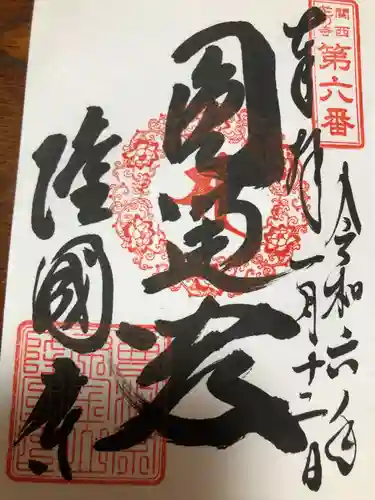 関西
花の寺
第六番
令和六年
奉拝
一月十二日
圓通殿
隆國寺